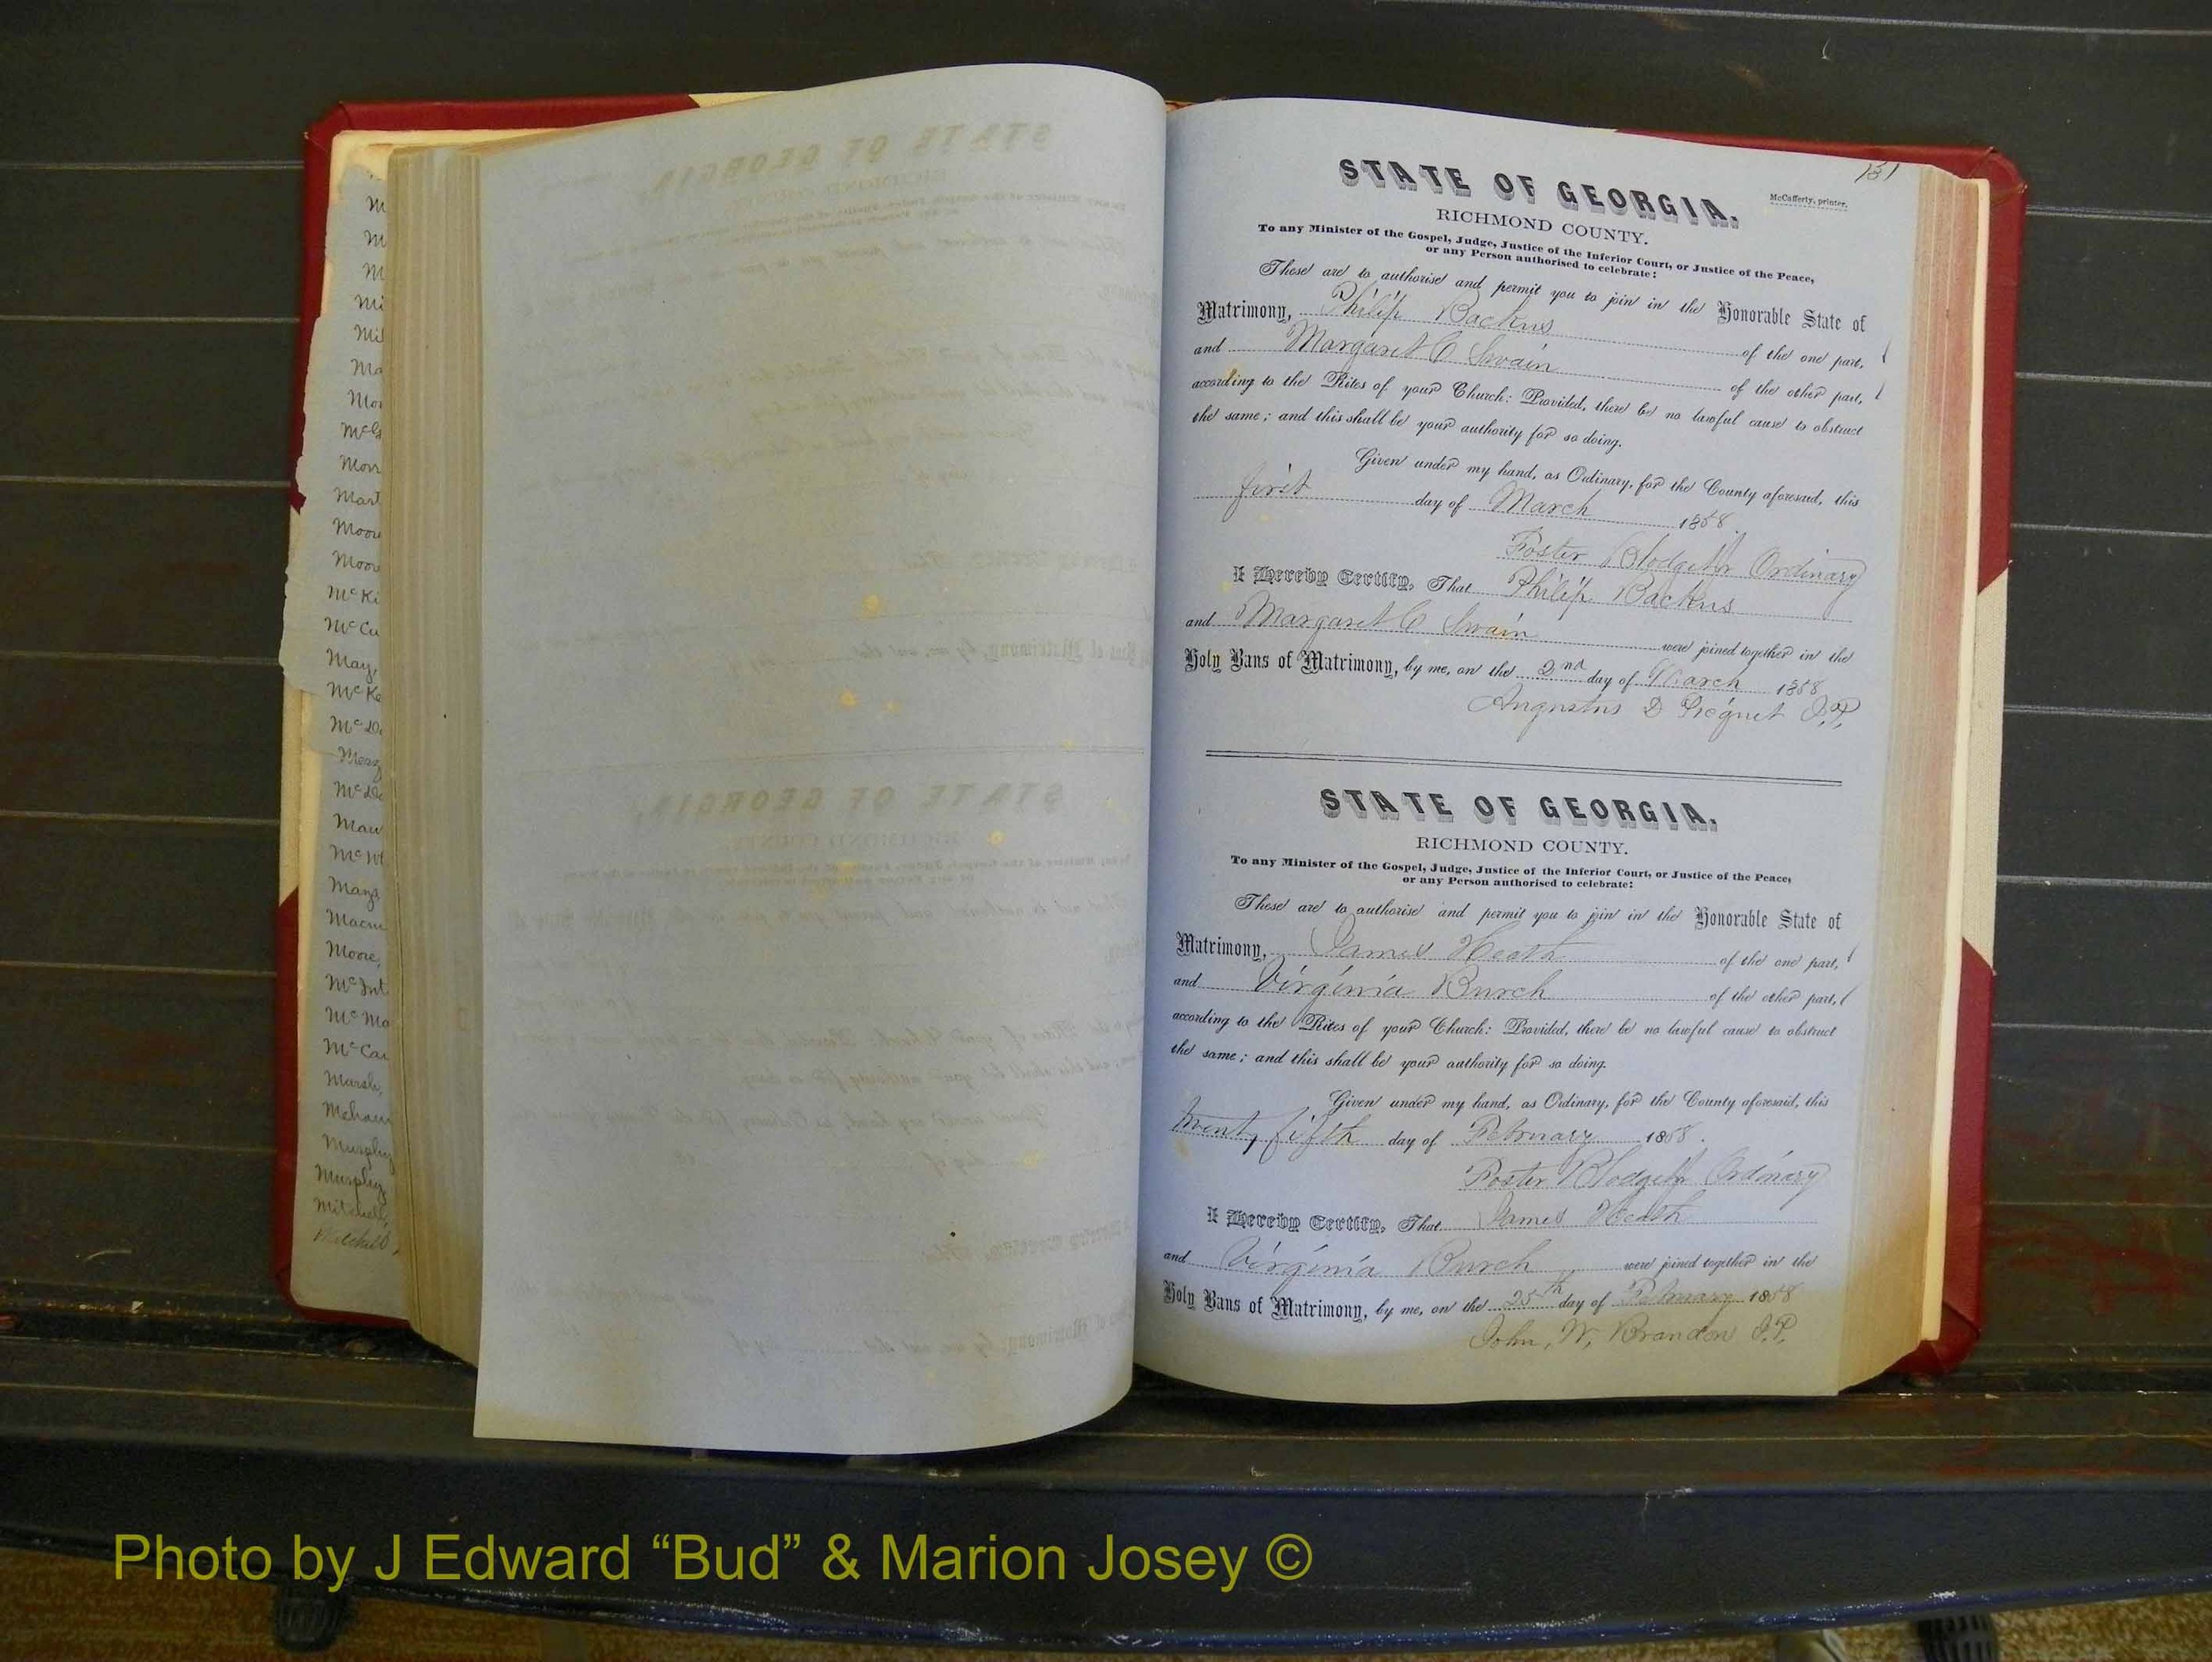 M
M
M
Mi
Mil
Ma
Mor
McG
Morr
Mart
Moor
Moor
McKi
McCu
May,
McKe
McDo
Merg
McDo
Mau
McWi
Mays
Macm
Moore,
McInt
McMa
McCar
Marsh,
Mehaen
Murphy
Murphy
Mitchell,
Mitchell,
131
STATE OF GEORGIA.
McCafferty, printer.
RICHMOND COUNTY.
To any Minister of the Gospel, Judge, Justice of the Inferior Court, or Justice of the Peace,
or any Person authorised to celebrate:
These are to authorise and permit you to join in the Honorable State of
Matrimony, Philip Backus of the one part,
and Margaret C Swain of the other part,
according to the Rites of your Church: Provided, there be no lawful cause to obstruct
the same; and this shall be your authority for so doing.
Given under my hand, as Ordinary, for the County aforesaid, this
first day of March 1858.
Foster Blodget Jr Ordinary
I Hereby Certify, That Philip Backus
and Margaret C Swain were joined together in the
Holy Bans of Matrimony, by me, on the 2nd day of March 1858
Augustus D Picquet J.P.
STATE OF GEORGIA.
RICHMOND COUNTY.
To any Minister of the Gospel, Judge, Justice of the Inferior Court, or Justice of the Peace,
or any Person authorised to celebrate:
These are to authorise and permit you to join in the Honorable State of
Matrimony, James Heath of the one part,
and Virginia Burch of the other part,
according to the Rites of your Church: Provided, there be no lawful cause to obstruct
the same; and this shall be your authority for so doing.
Given under my hand, as Ordinary, for the County aforesaid, this
twenty fifth day of February 1858.
Foster Blodget Jr Ordinary
I Hereby Certify, That James Heath
and Virginia Burch were joined together in the
Holy Bans of Matrimony, by me, on the 25th day of February 1858
John, W, Brandon J.P.
Photo by J Edward “Bud” & Marion Josey ©